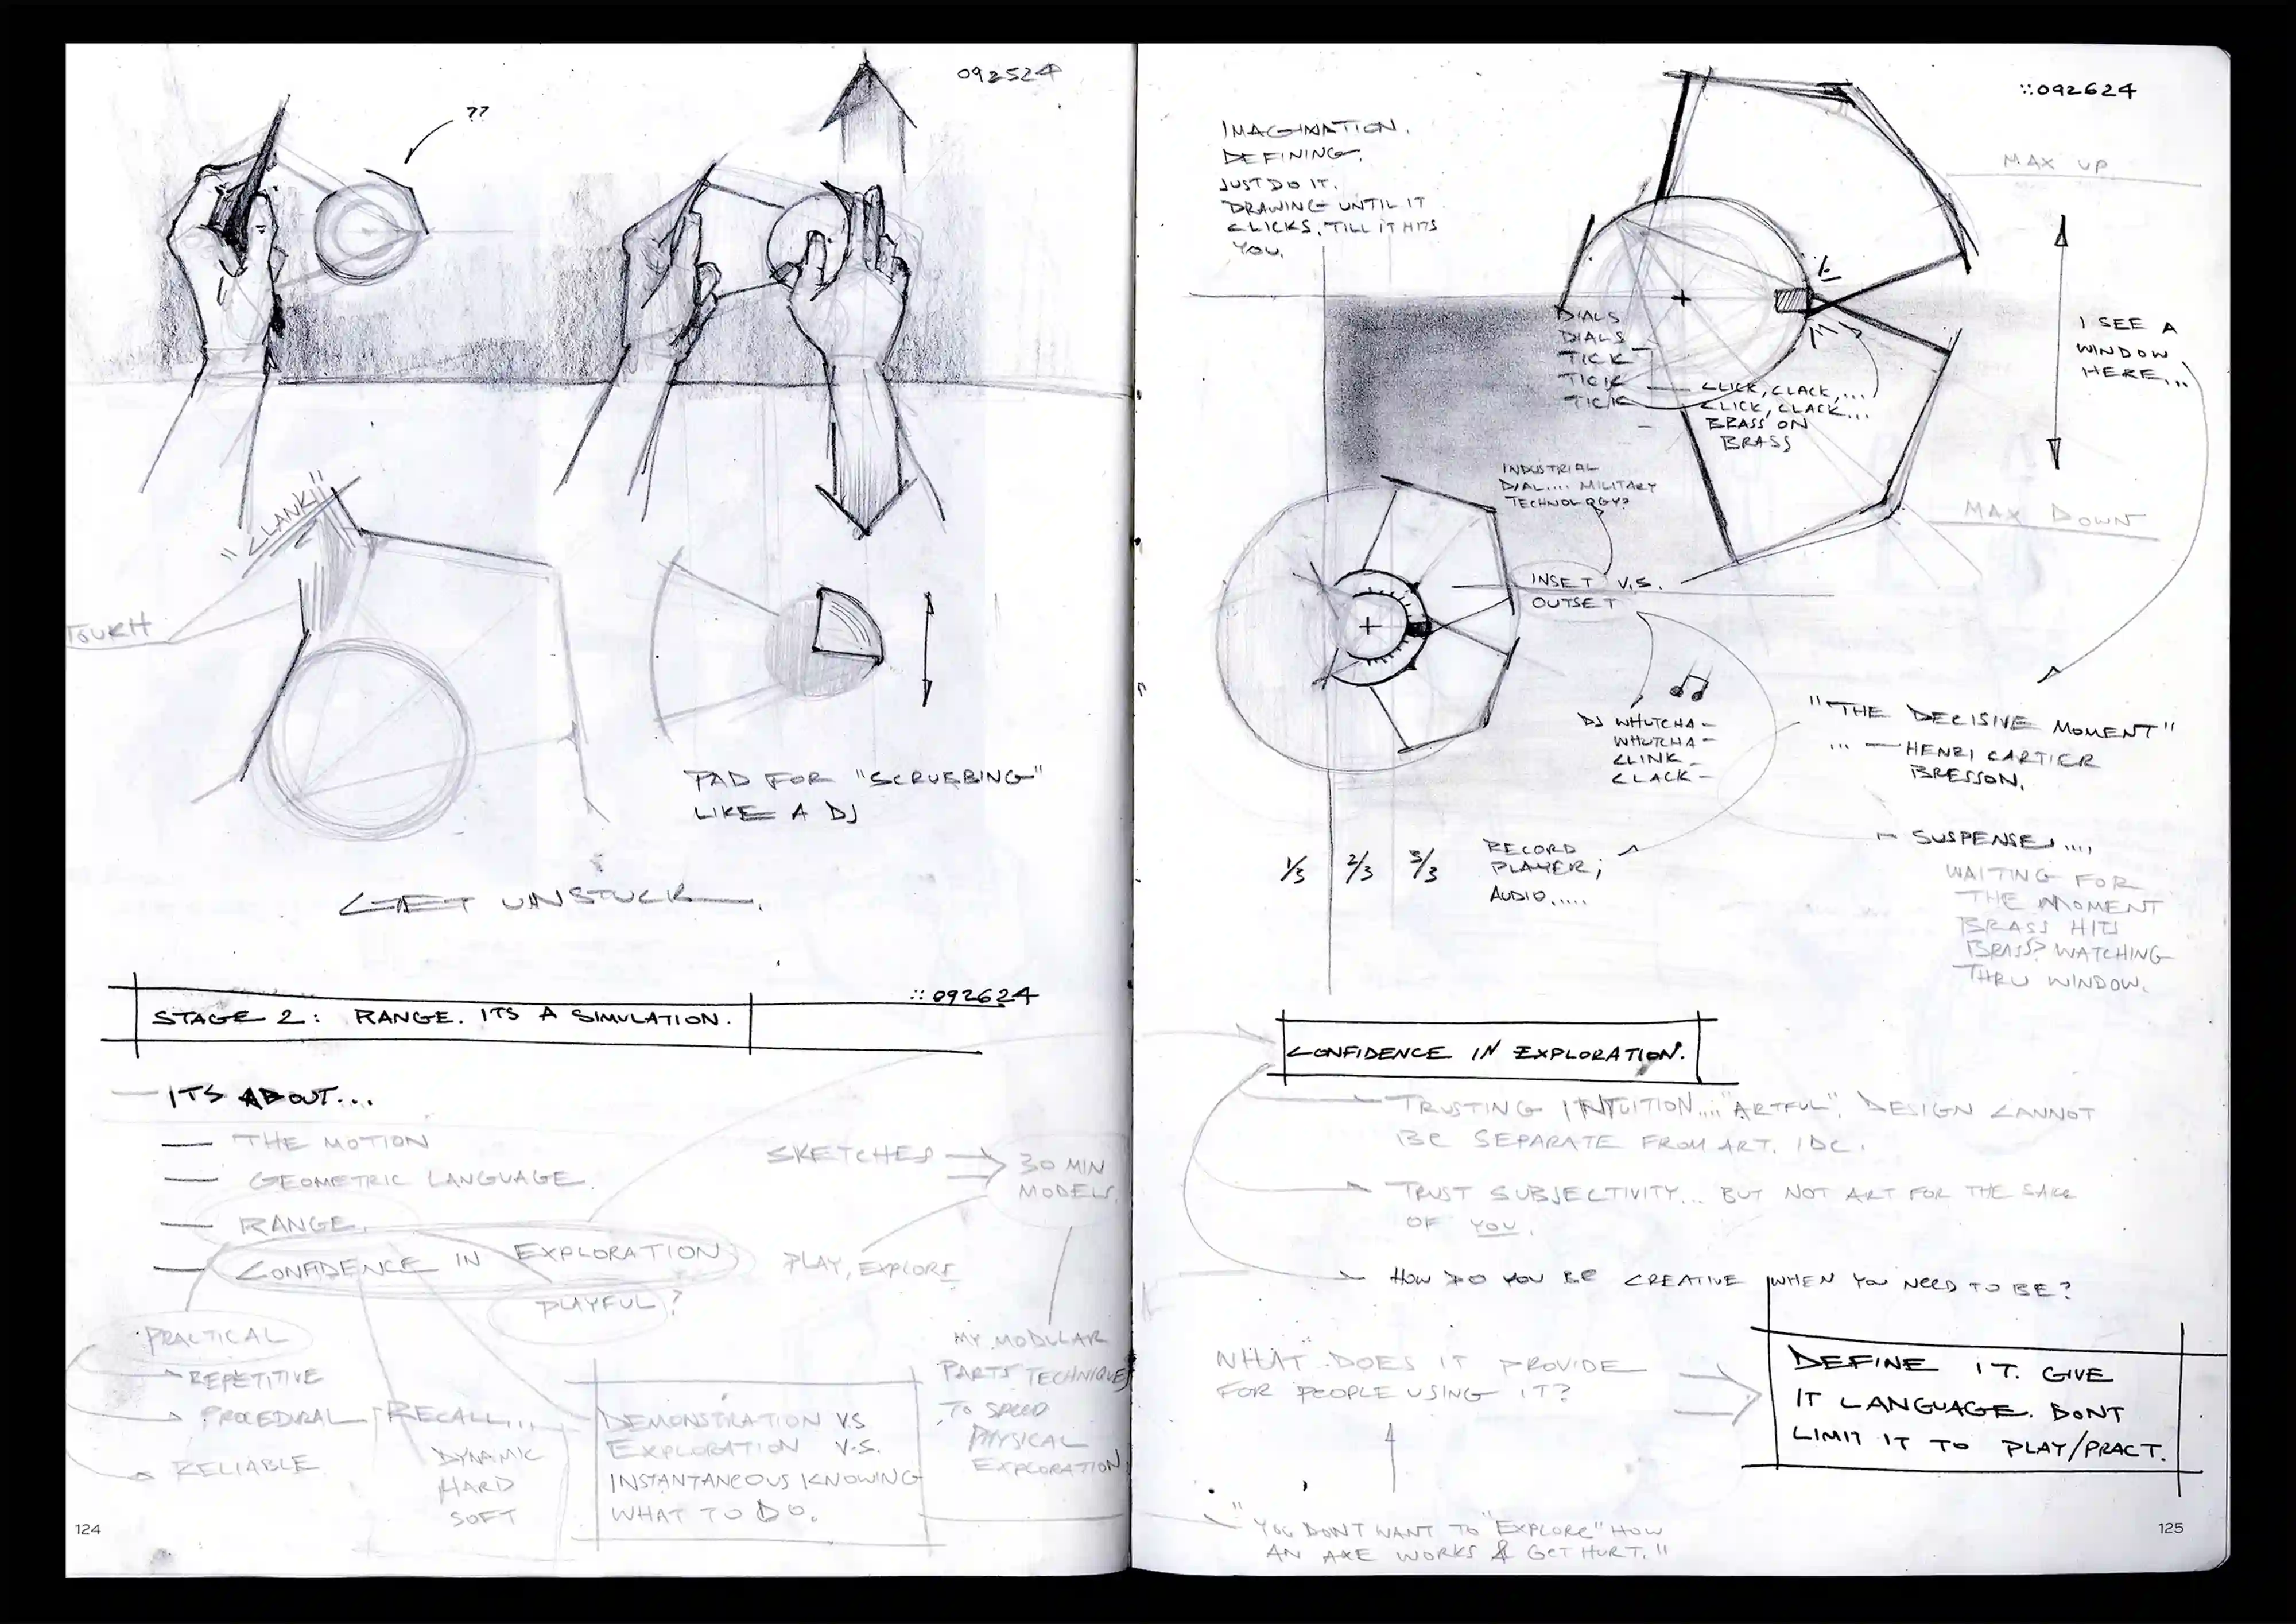 092524
??
"CLANK"
TOUCH
PAD FOR "SCRUBBING"
LIKE A DJ
GET UNSTUCK.
::092624
STAGE 2: RANGE. ITS A SIMULATION.
ITS ABOUT...
THE MOTION
GEOMETRIC LANGUAGE.
RANGE.
CONFIDENCE IN EXPLORATION
PLAYFUL?
PRACTICAL
REPETITIVE
PROCEDURAL
RELIABLE
RECALL...
DYNAMIC
HARD
SOFT
SKETCHES
30 MIN
MODELS.
PLAY, EXPLORE
MY MODULAR
PARTS TECHNIQUE
TO SPEED
PHYSICAL
EXPLORATION
DEMONSTRATION V.S
EXPLORATION V.S.
INSTANTANEOUS KNOWING
WHAT TO DO.
124
::092624
IMAGINATION.
DEFINING.
JUST DO IT.
DRAWING UNTIL IT
CLICKS, TILL IT HITS
YOU.
MAX UP
I SEE A
WINDOW
HERE...
MAX DOWN
DIALS
DIALS
TICK
TICK
TICK
CLICK, CLACK,...
CLICK, CLACK...
BRASS ON
BRASS
INDUSTRIAL
DIAL.... MILITARY
TECHNOLOGY?
INSET V.S.
OUTSET
DJ WHUTCHA-
WHUTCHA-
CLINK-
CLACK-
"THE DECISIVE MOMENT"
... — HENRI CARTIER
BRESSON.
1/3 2/3 3/3
RECORD
PLAYER;
AUDIO.....
SUSPENSE....
WAITING FOR
THE MOMENT
BRASS HITS
BRASS? WATCHING
THRU WINDOW.
CONFIDENCE IN EXPLORATION.
TRUSTING INTUITION.... "ARTFUL". DESIGN CANNOT
BE SEPARATE FROM ART. IDC.
TRUST SUBJECTIVITY... BUT NOT ART FOR THE SAKE
OF YOU.
HOW DO YOU BE CREATIVE WHEN YOU NEED TO BE?
WHAT DOES IT PROVIDE
FOR PEOPLE USING IT?
DEFINE IT. GIVE
IT LANGUAGE. DONT
LIMIT IT TO PLAY/PRACT.
"YOU DONT WANT TO "EXPLORE" HOW
AN AXE WORKS & GET HURT."
125